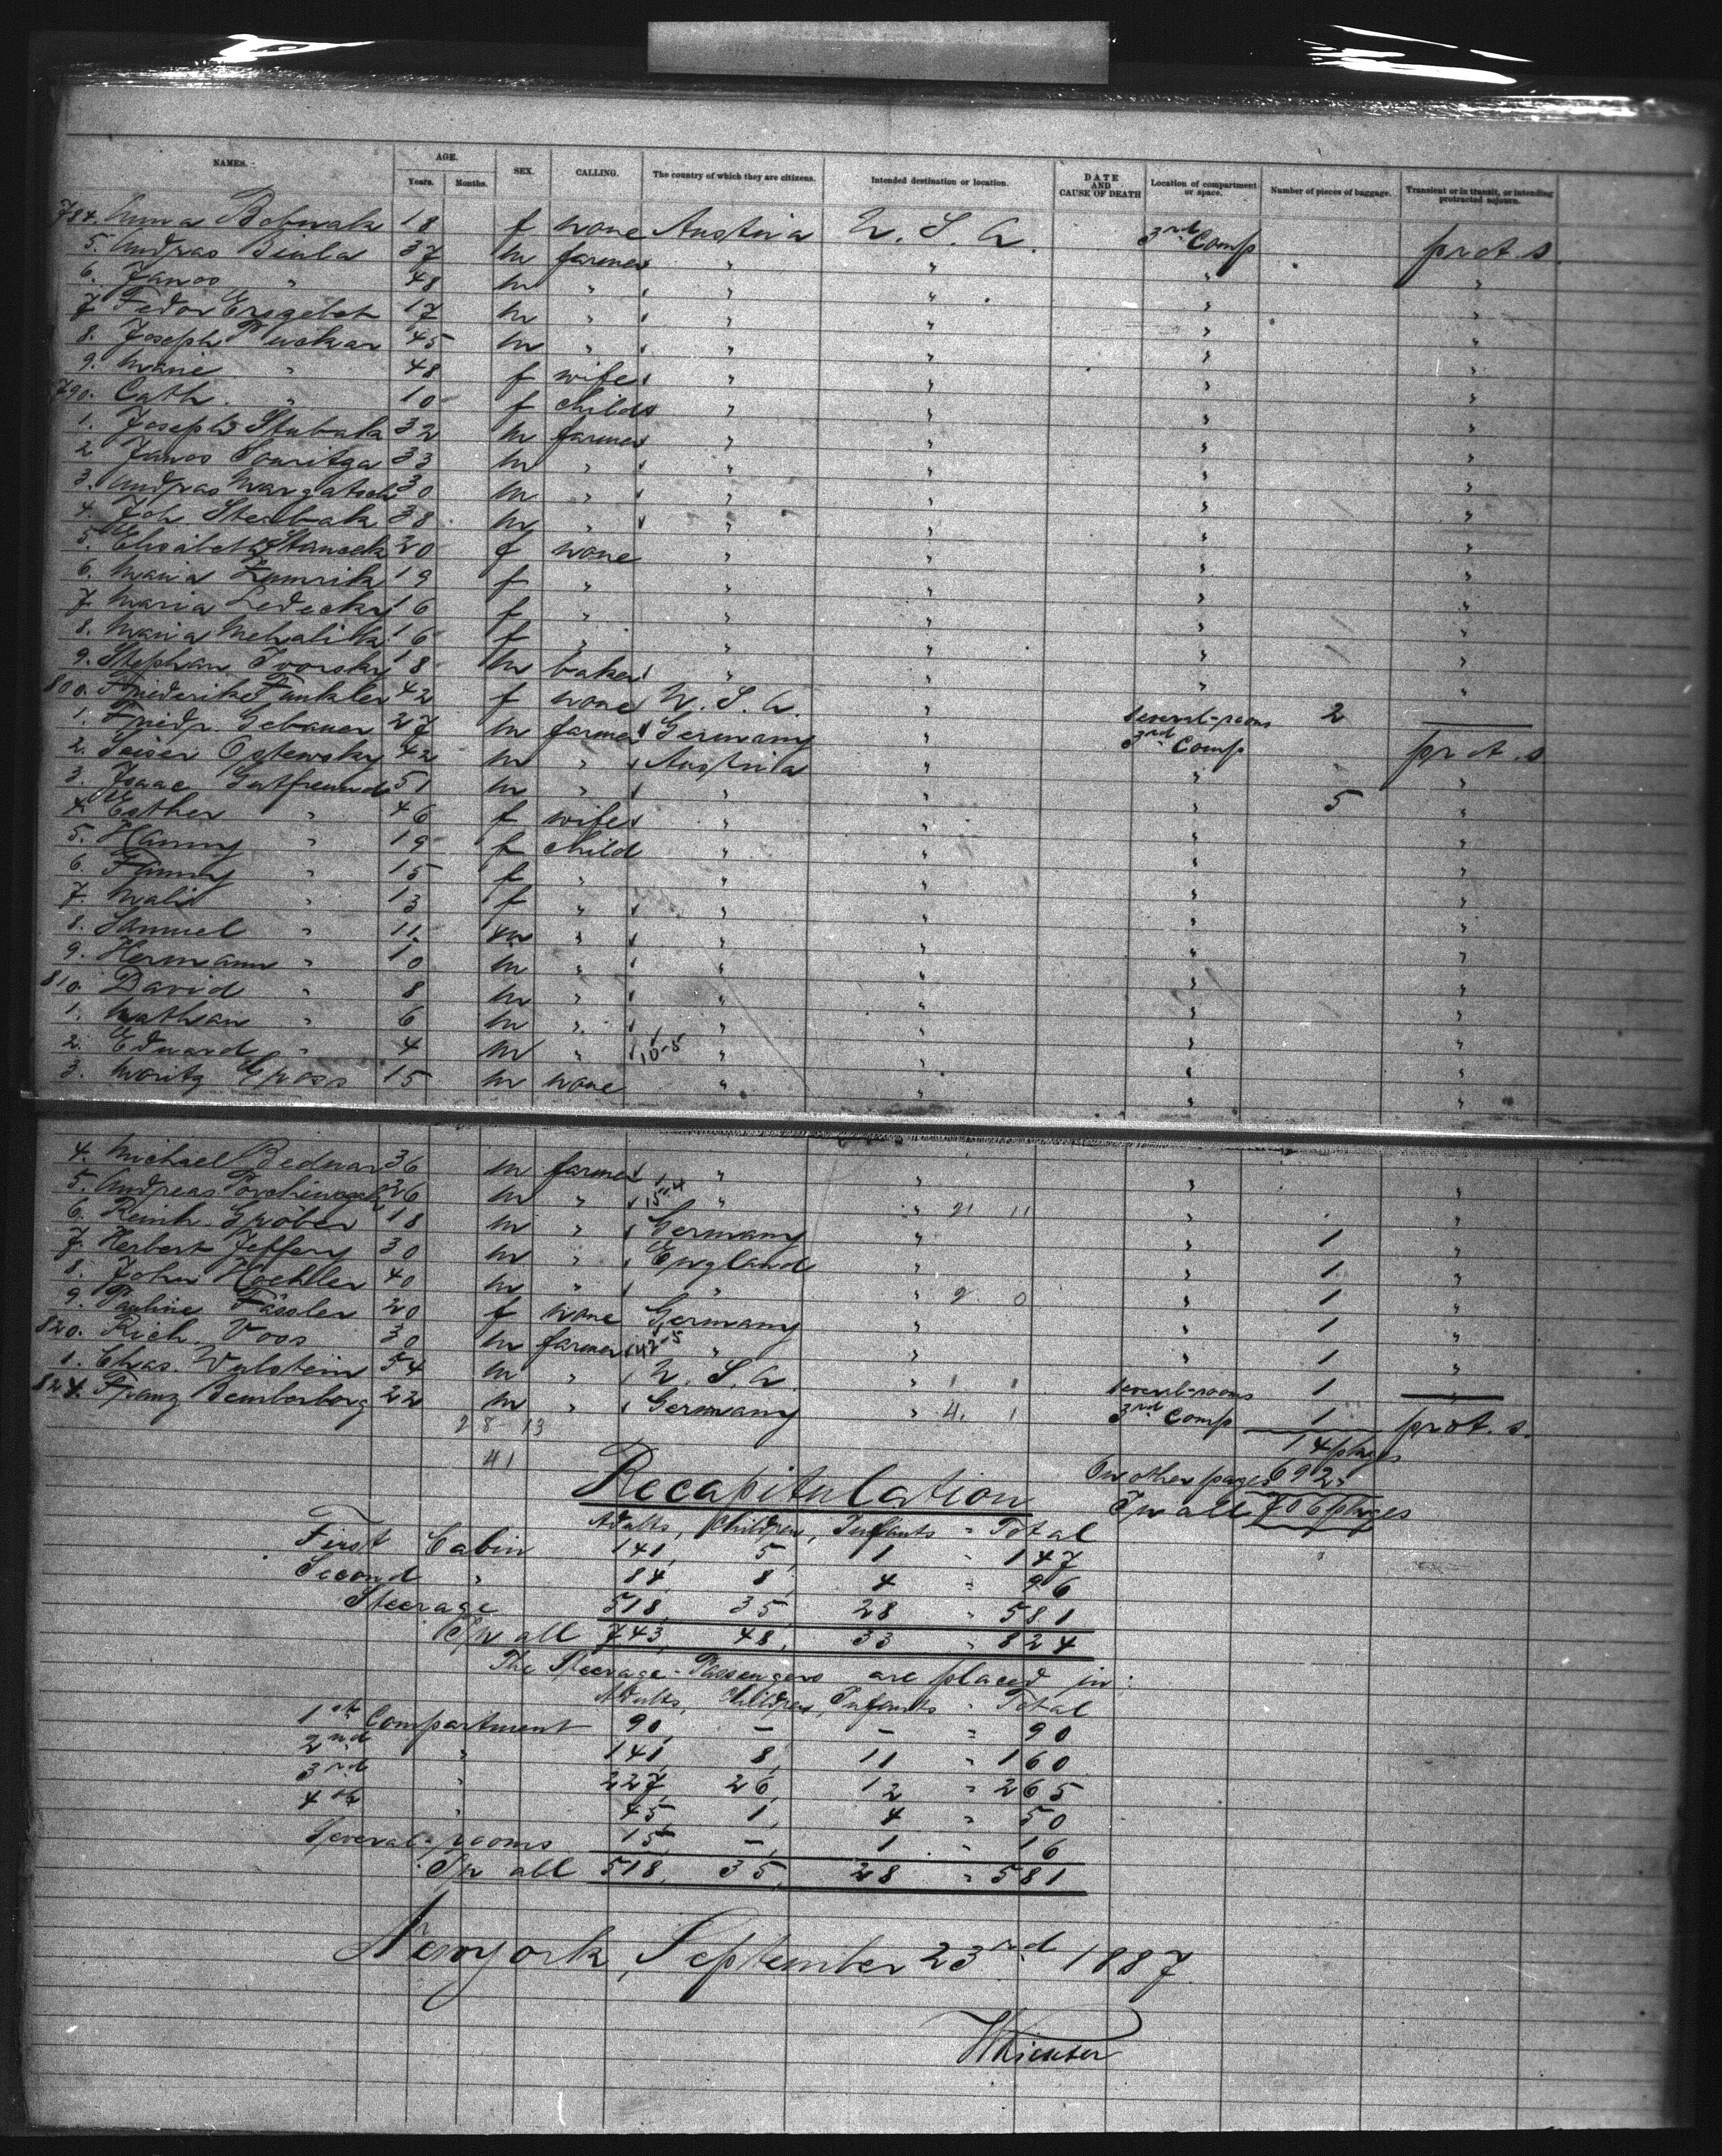 NAMES. AGE. SEX. CALLING. The country of which they are citizens. Intended destination or location. DATE AND CAUSE OF DEATH Location of compartment or space. Number of pieces of baggage. Transient or in transit, or intending protracted sojourn.
Years. Months.
784. Anna 18 f none Austria U. S. A. 3rd Comp prot. s.
5. Andras 37 m farmer " " " "
6. Janos " 48 m " " " " "
7. Fedor 17 m " " " " "
8. Joseph 45 m " " " " "
9. Marie " 48 f wife " " " "
790. Cath. " 10 f child " " " "
1. Joseph 32 m farmer " " " "
2 Janos 33 m " " " " "
3. Andras 30 m " " " " "
4. Joh. 38 m " " " " "
5. Elisabeth 20 f none " " " "
6. Maria 19 f " " " " "
7. Maria Ledecky 16 f " " " " "
8. Maria 16 f " " " " "
9. Stephan 18 m baker " " " "
800. Friederike Funkler 42 f none U. S. A. " several-rooms 2
1. Friedr. Gebauer 27 m farmer Germany " 3rd Comp prot. s
2. Ostewsky 42 m " Austria " " "
3. Isaac Gutfreund 51 m " " " " 5 "
4. Esther " 46 f wife " " " "
5. Hanny " 19 f child " " " "
6. Fanny " 15 f " " " " "
7. Mali " 13 f " " " " "
8. Samuel " 11. m " " " " "
9. Hermann " 10 m " " " " "
810. David " 8 m " " " " "
1. Nathan " 6 m " " " " "
2. Eduard " 4 m " 10-5 " " " "
3. Moritz Gross 15 m none " " " "
4. Michael Bednar 36 m farmer " " " "
5. Andreas 26 m " 15-4 " " 2 11 " "
6. Reinh. Gröber 18 m " Germany " " 1 "
7. Herbert Jeffery 30 m " England " " 1 "
8. John Koehler 40 m " " " 2 0 " 1 "
9. Pauline Fässler 20 f none Germany " " 1 "
820. Rich. Voss 30 m farmer " " " 1 "
1. Chas. Wulstein 54 m " U. S. A. " 1 1 several-rooms 1
824. Franz Bemborborg 22 m " Germany " 4. 1 3rd Comp 1 prot. s.
28 13 14 pkges
41 On other pages 692
Recapitulation In all 706 pkges
Adults, Children, Infants = Total
First Cabin 141, 5, 1 = 147
Second " 84, 8, 4 = 96
Steerage 518, 35, 28 = 581
In all 743, 48, 33 = 824
The Steerage-Passengers are placed in:
Adults, Children, Infants = Total
1st Compartment 90, -, - = 90
2nd " 141, 8, 11 = 160
3rd " 227, 26, 12 = 265
4th " 45, 1, 4 = 50
Several-rooms 15, -, 1 = 16
In all 518, 35, 28 = 581
Newyork, September 23rd 1887